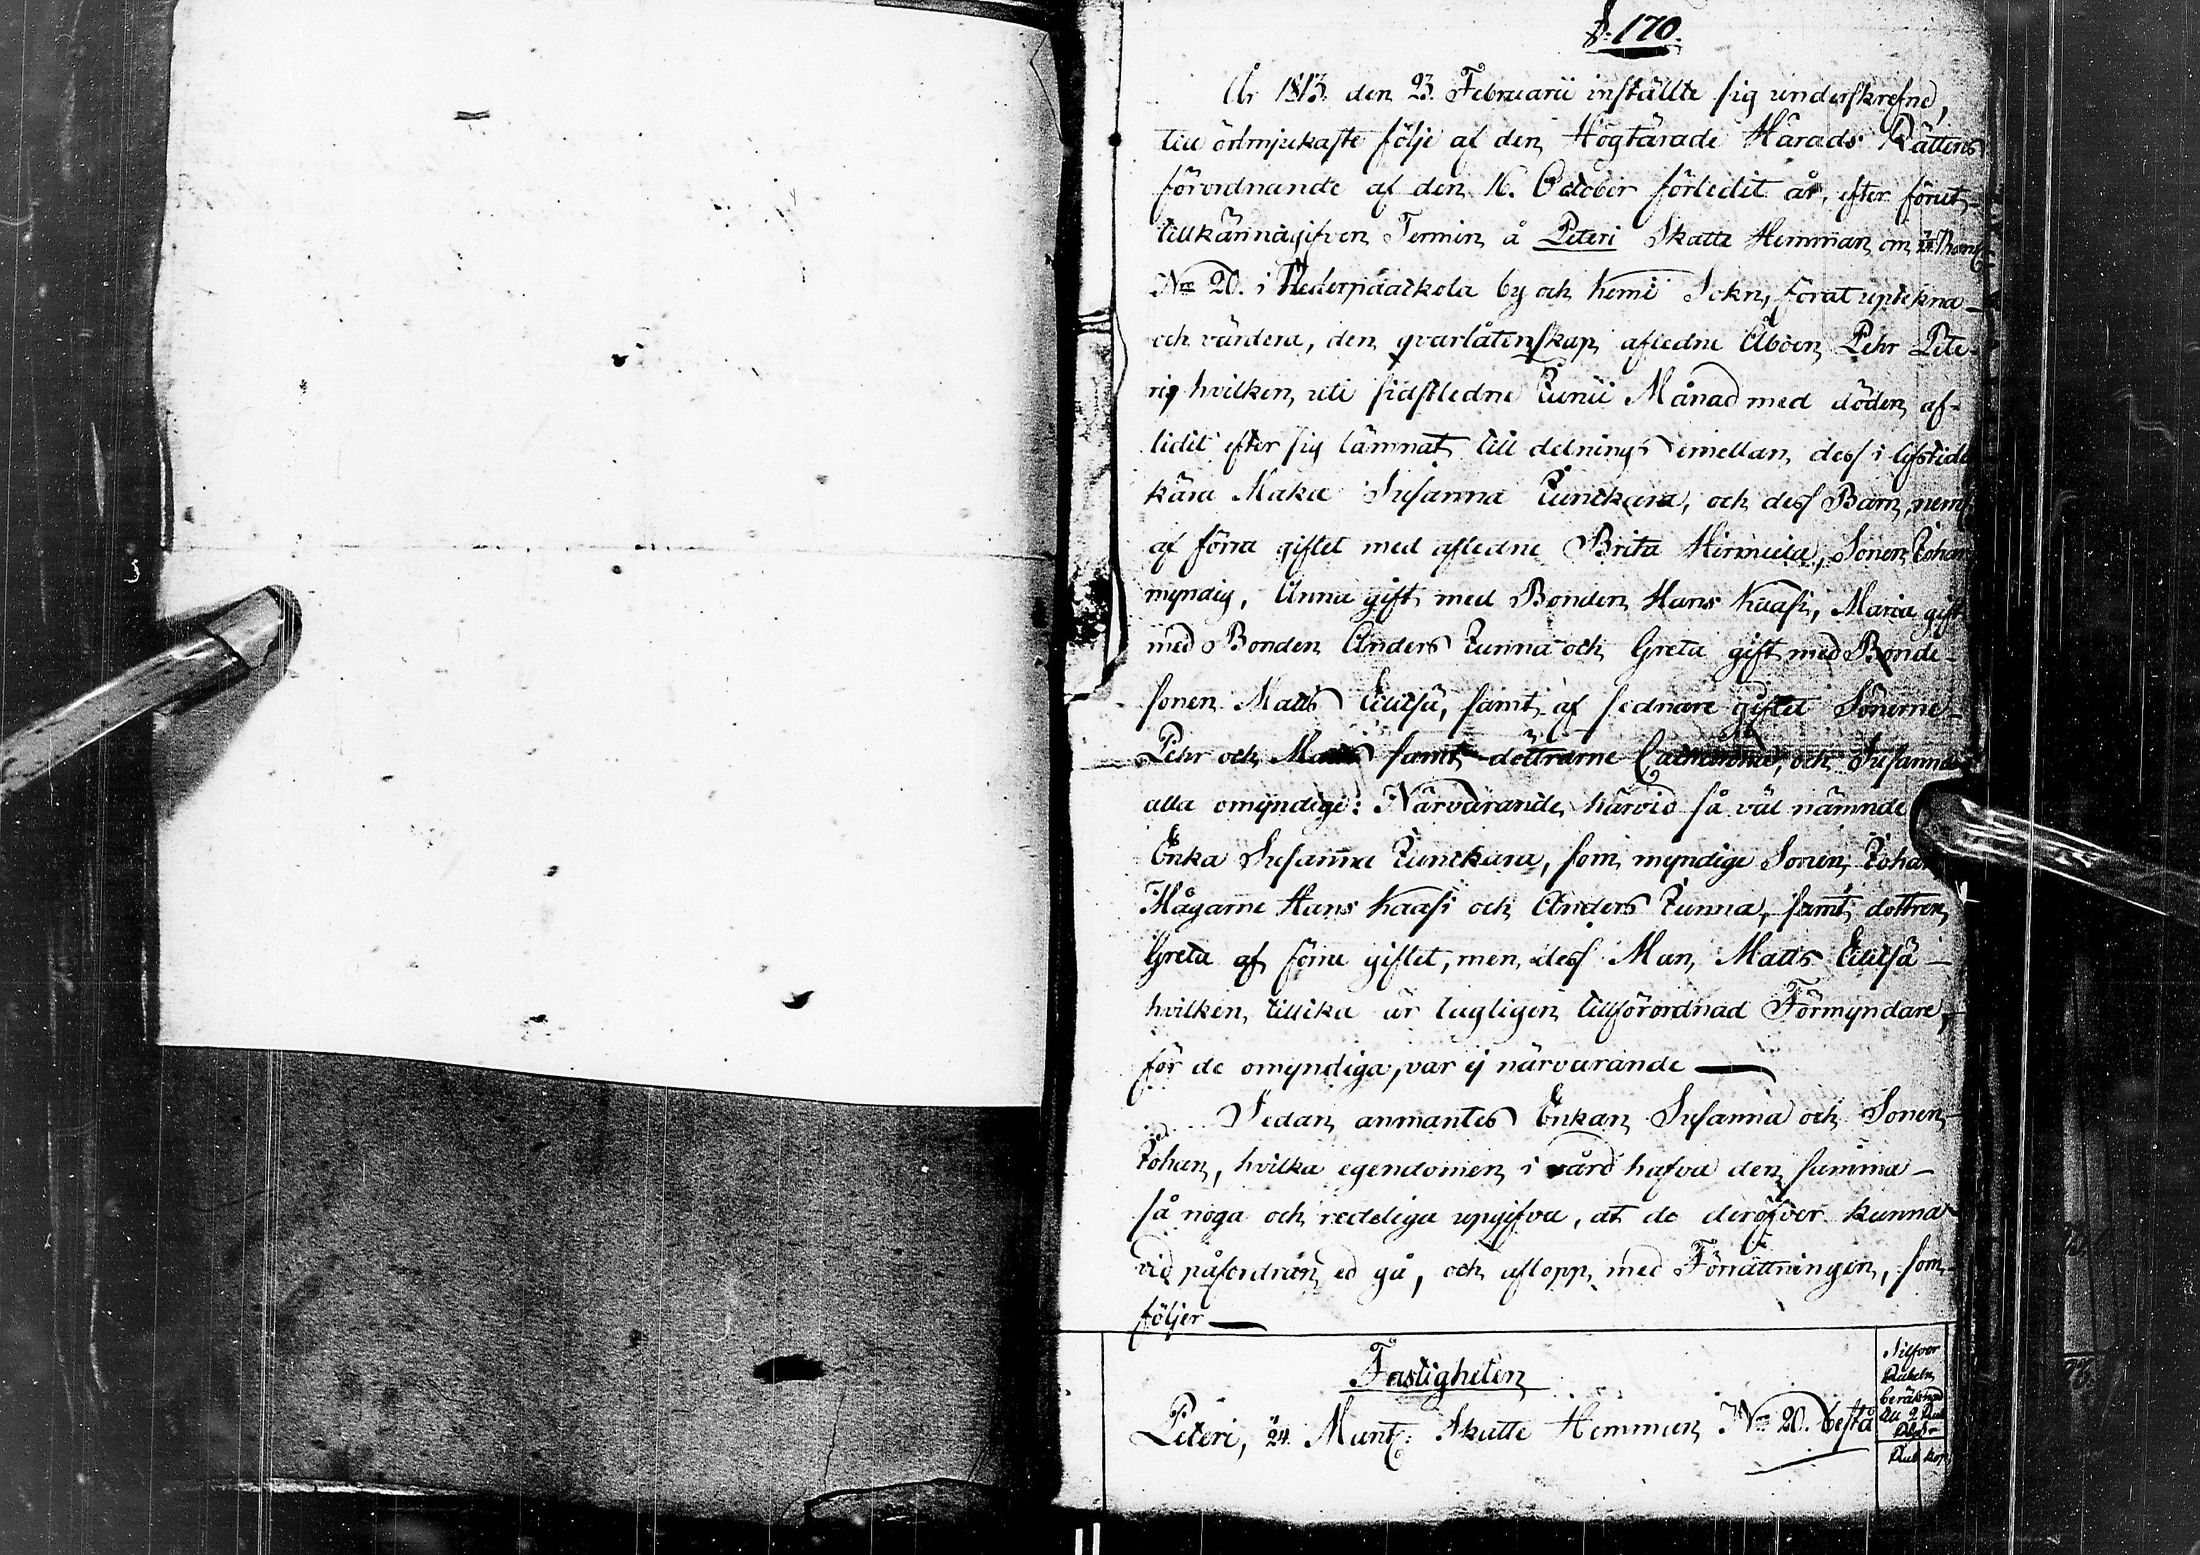 P. 170.
År 1813. den 23. Februarii inställte sig underskrefne,
till ödmjukaste följe af den Högtärade Härads Rättens
förordnande af den 16. October förledit år, efter förut-
tillkännagifven Termin å Peteri Skatte Hemman om
No 20. i by och Kemi Sokn, förat uptekna
och värdera, den qvarlåtenskap afledne Åboen Pehr Pete-
ri, hvilken uti sidstledne Junii Månad med döden af-
lidit efter sig lämnat till delnings emellan dess i lifstide
kära Maka Susanna Junckara, och dess Barn, neml
af förra giftet med afledne Brita, Sonen Johan
myndig, Anna gift med Bonden Hans Kaasi, Maria gift
med Bonden Anders Junna och Greta gift med Bonde-
sonen Matts, samt af sednare giftet Sönerne
Pehr och Matts samt döttrarne Catharina, och Susanna
alla omyndige: Närvarande härvid så väl nämnde
Enka Susanna Junckara, som myndige Sonen Johan
Mågarne Hans Kaasi och Anders Junna, samt dottren
Greta af förra giftet, men dess Man Matts
hvilken tillika är lagligen tillförordnad Förmyndare,
för de omyndiga, var ej närvarande —
Sedan anmantes Enkan Susanna och Sonen
Johan, hvilka egendomen i vård hafva den samma
så noga och redeliga upgifva, at de deröfver kunna
vid påfordran ed gå, och aflopp med Förrättningen, som
följer —
Fastigheten
Silfver
Rubeln
beräknad
till 2 Rub
Peteri, 24. Mantl: Skatte Hemman No 20. bestå
Rub Kop